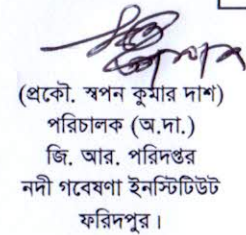 (প্রকৌ. স্বপন কুমার দাশ)
পরিচালক (অ.দা.)
জি. আর. পরিদপ্তর
নদী গবেষণা ইনস্টিটিউট
ফরিদপুর।